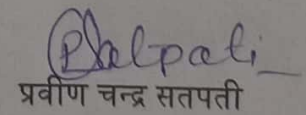 PSatpati
प्रवीण चन्द्र सतपती